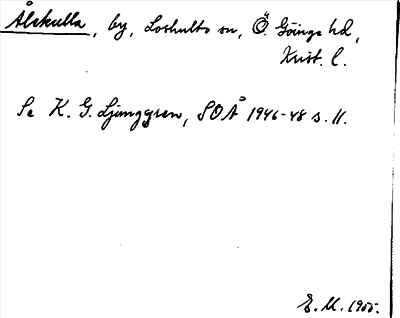 Ålskulla, by, Loshults sn, Ö. Göinge hd,
Krist. l.
Se K. G. Ljunggren, SOÅ 1946-48 s. 11.
E. M. 1955.